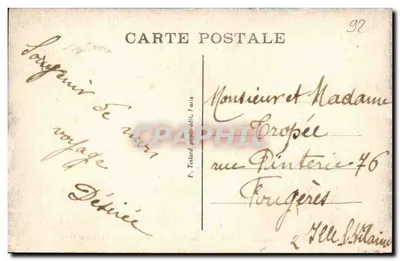 CARTE POSTALE
92
Souvenir de mon
voyage
Désirée
Monsieur et Madame
Tropée
rue Pinterie 76
Fougères
Ille & Vilaine